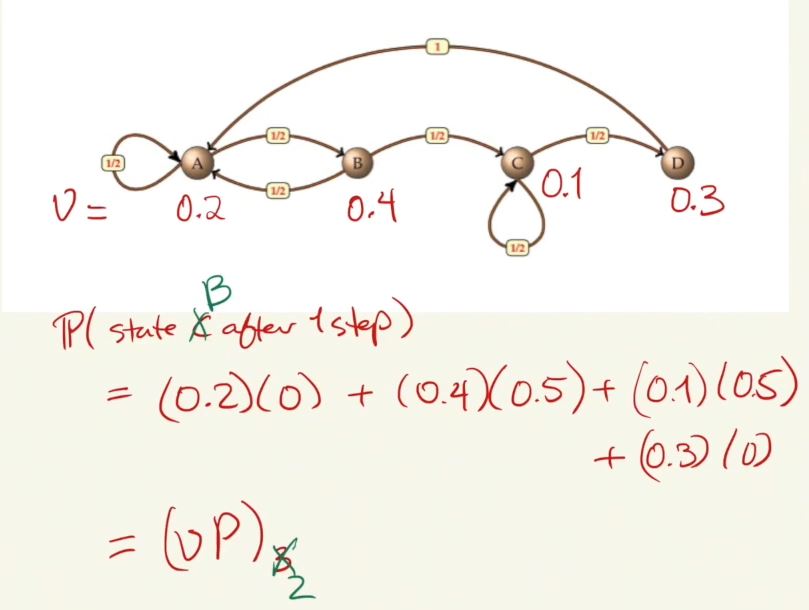 1
1/2 A 1/2 B 1/2 C 1/2 D
1/2
ν = 0.2 0.4 0.1 0.3
1/2
B
ℙ( state C after 1 step)
= (0.2)(0) + (0.4)(0.5) + (0.1)(0.5)
+ (0.3)(0)
= (νP)3
2